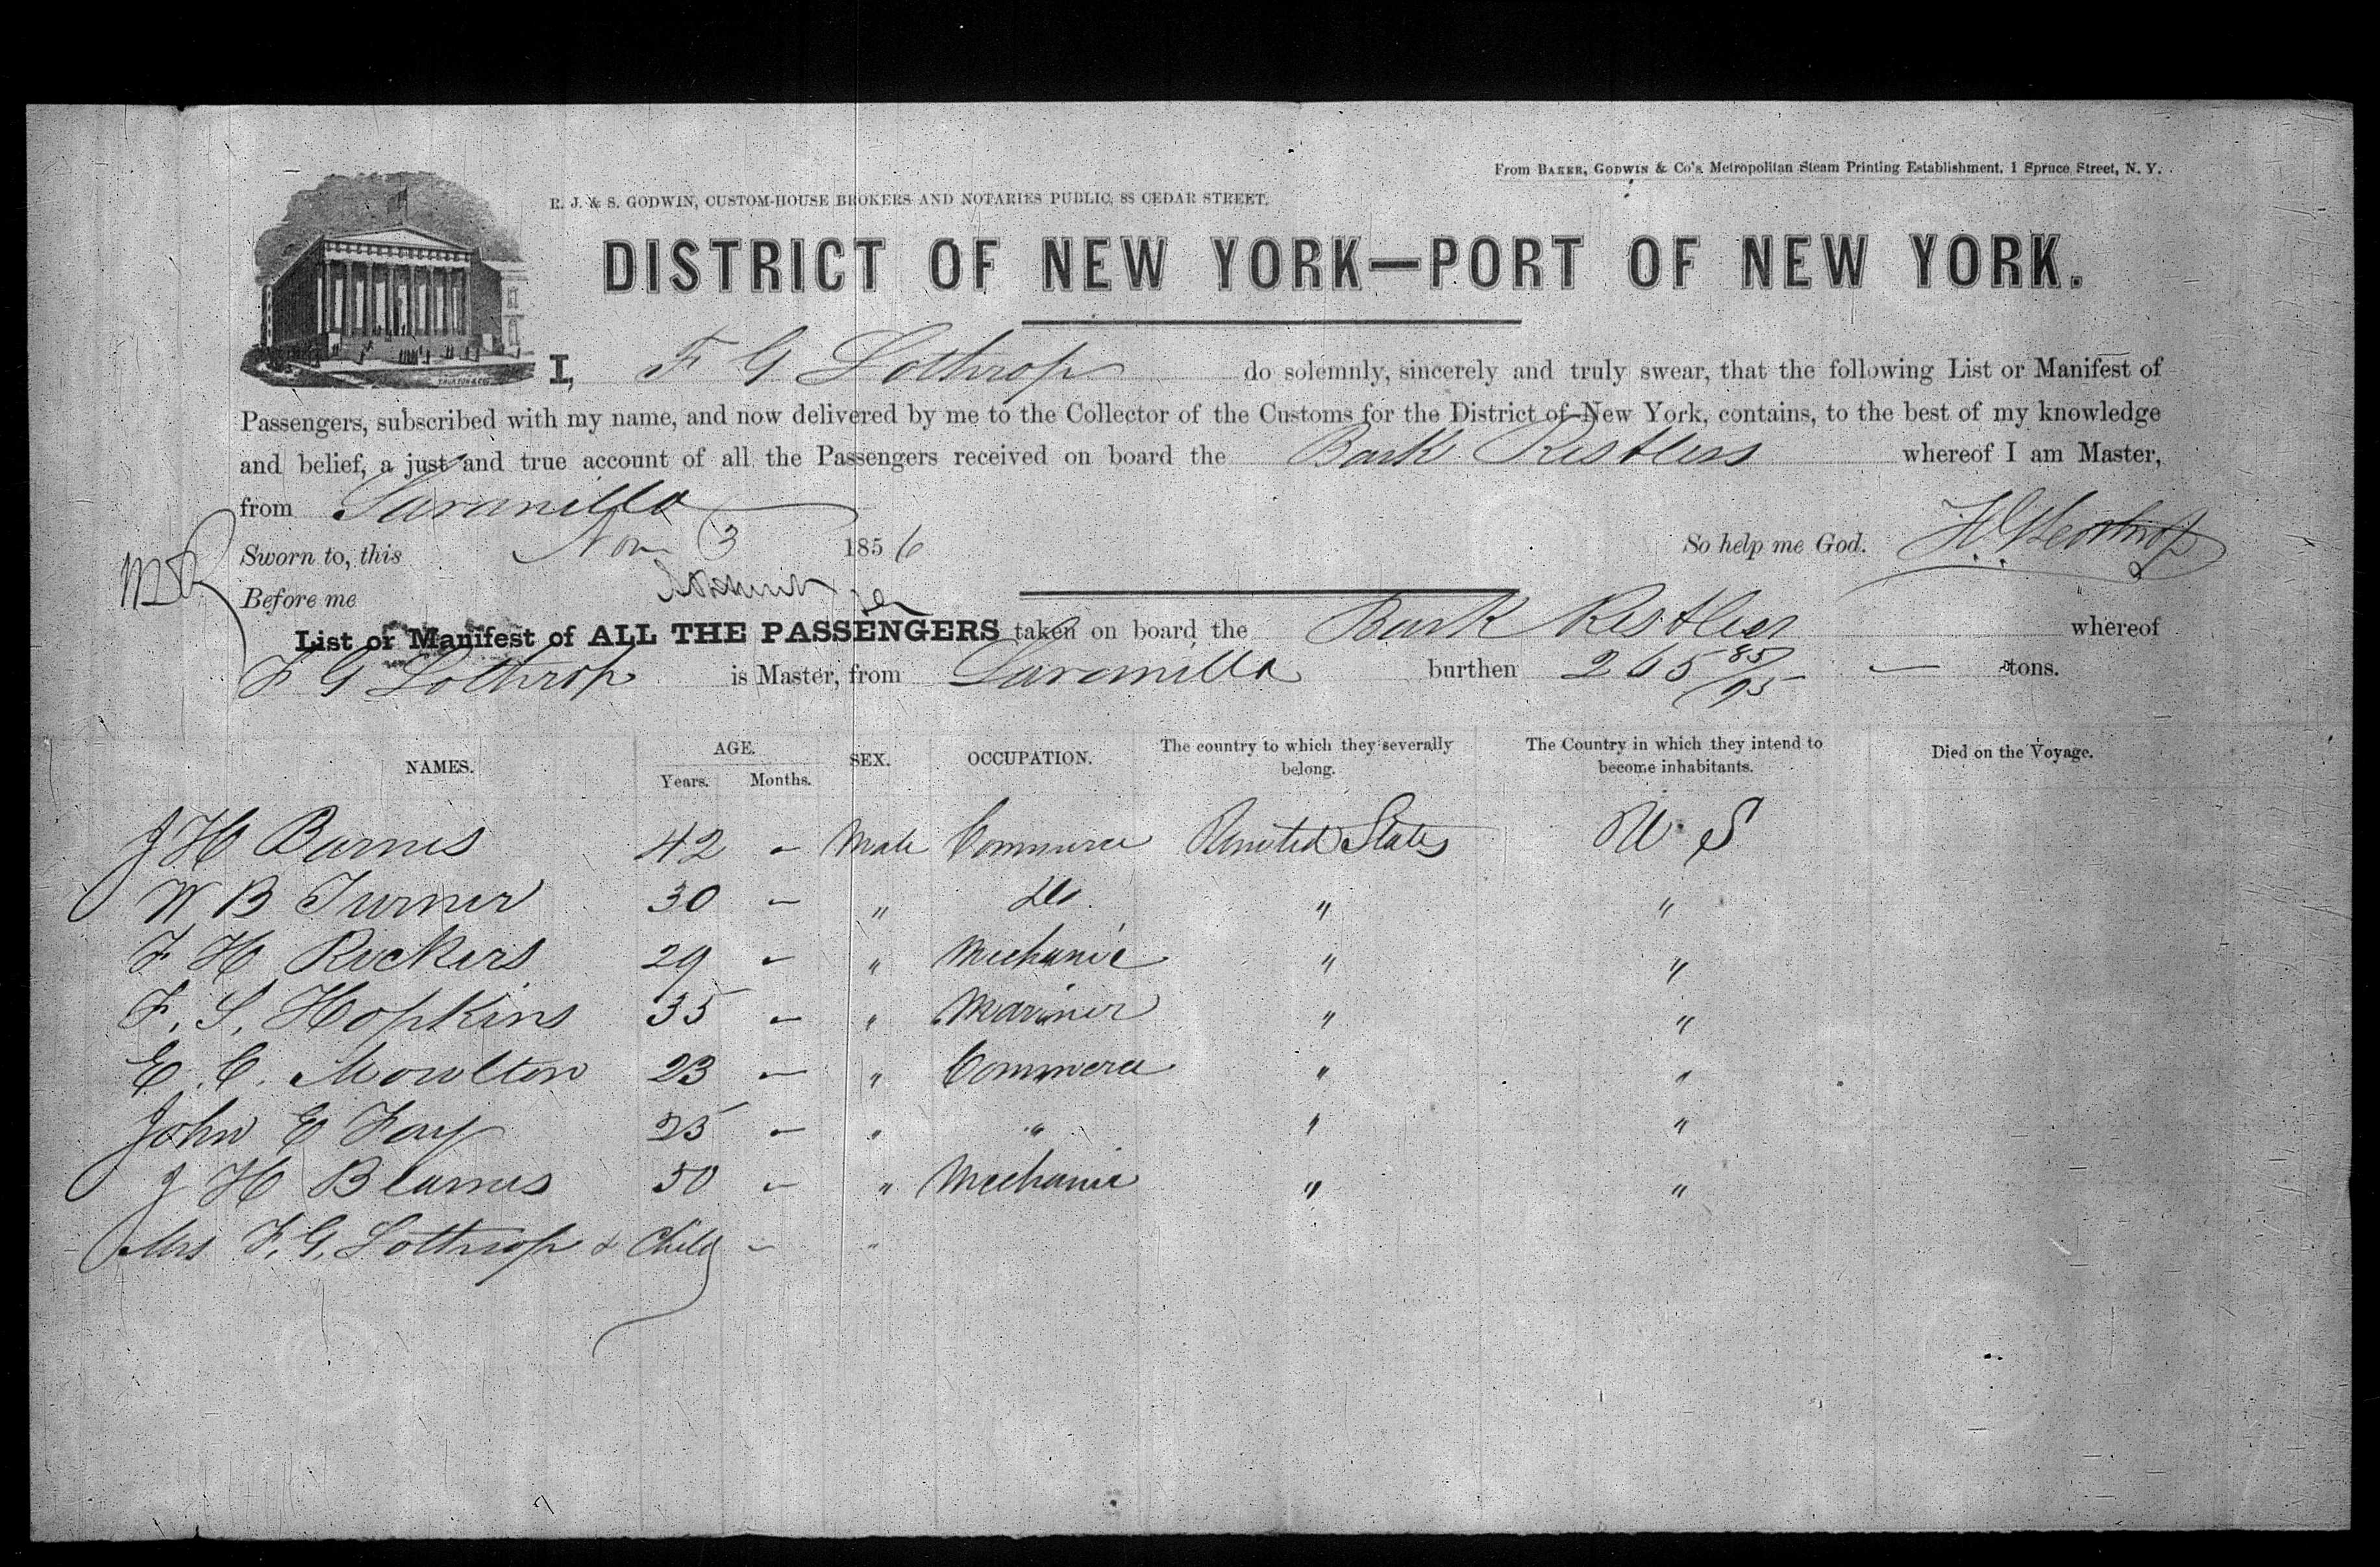 From BAKER, GODWIN & Co's Metropolitan Steam Printing Establishment, 1 Spruce Street, N. Y.
R. J. & S. GODWIN, CUSTOM-HOUSE BROKERS AND NOTARIES PUBLIC, 88 CEDAR STREET.
DISTRICT OF NEW YORK—PORT OF NEW YORK.
I, F G Lothrop do solemnly, sincerely and truly swear, that the following List or Manifest of
Passengers, subscribed with my name, and now delivered by me to the Collector of the Customs for the District of New York, contains, to the best of my knowledge
and belief, a just and true account of all the Passengers received on board the Bark Restless whereof I am Master,
from Savanilla
Sworn to, this Nov 3 1856 So help me God.
Before me
List or Manifest of ALL THE PASSENGERS taken on board the Bark Restless whereof
F G Lothrop is Master, from Savanilla burthen 265 85/95 — tons.
NAMES. AGE. Years. Months. SEX. OCCUPATION. The country to which they severally belong. The Country in which they intend to become inhabitants. Died on the Voyage.
J H Barnes 42 - Male Commerce United States U S
W B Turner 30 - " Do. " "
F H Ruckers 29 - " Mechanic " "
F. S. Hopkins 35 - " Mariner " "
E. C. Moulton 23 - " Commerce " "
John E Fay 25 - " " " "
J H Blarnes 50 - " Mechanic " "
Mrs F. G. Lothrop & Child - "